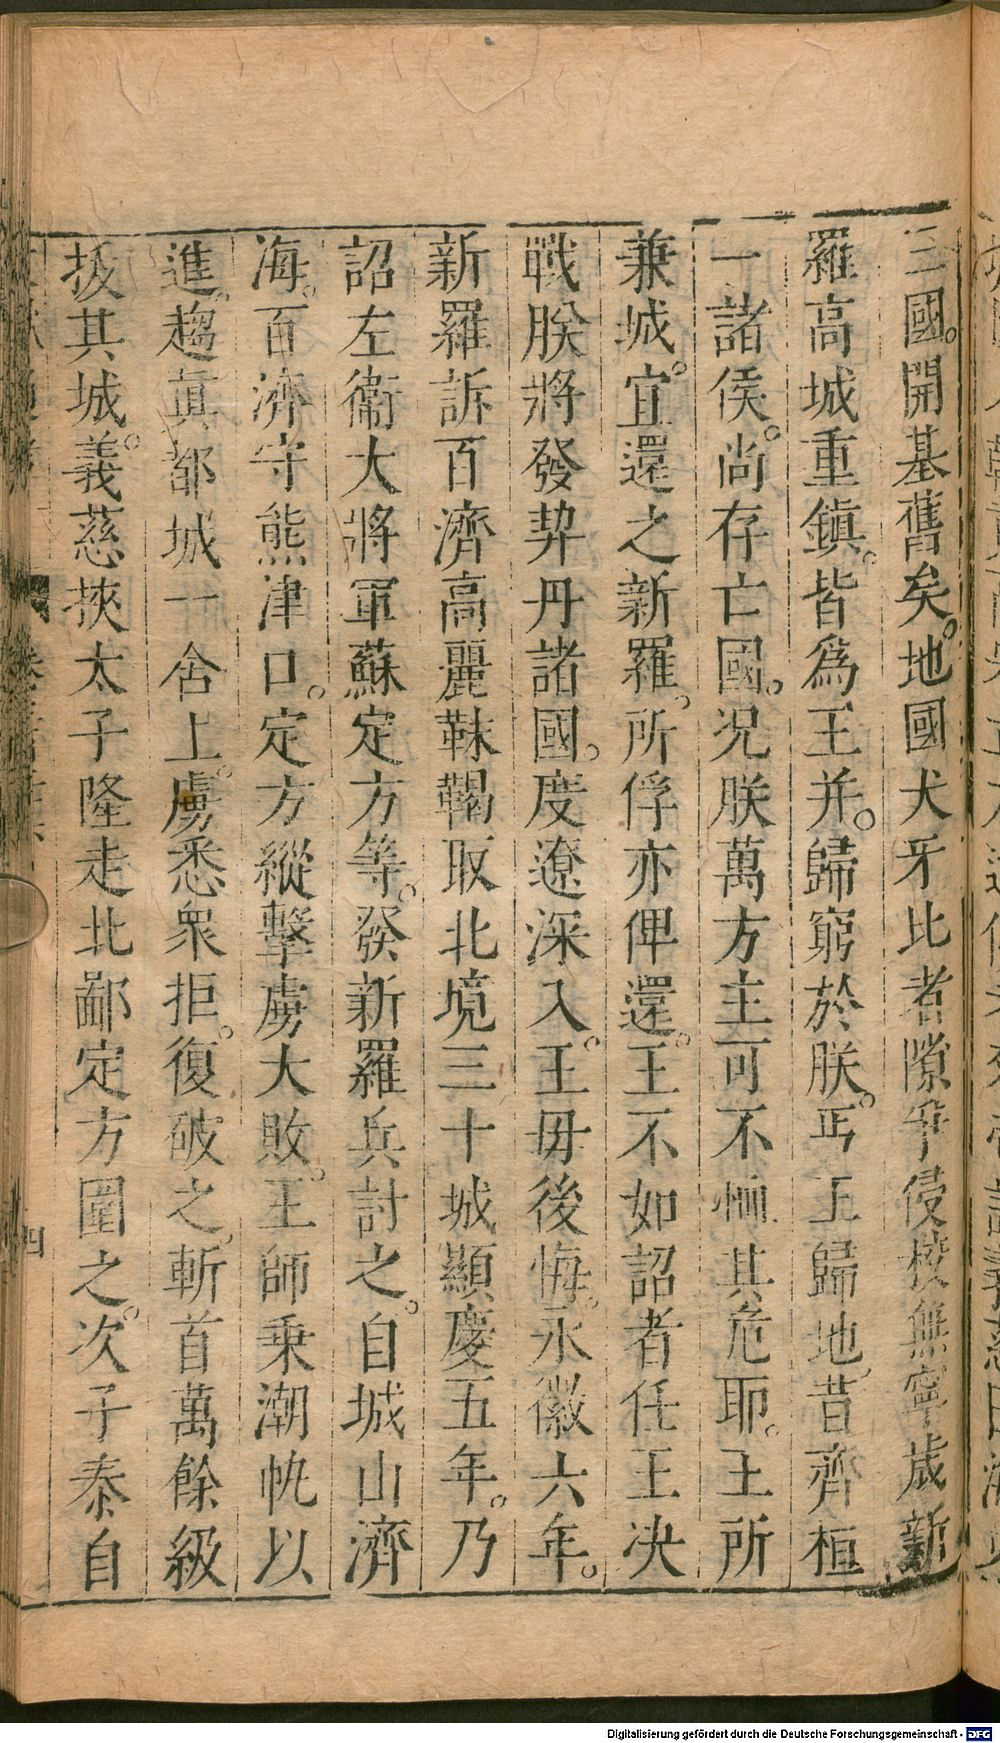 三國。開基舊矣。地國犬牙比者隙爭侵校無寧歲新
羅高城重鎮。皆爲王并。歸窮於朕。丐王歸地。昔齊桓
一諸侯。尚存亡國。况朕萬方主可不恤其危耶。王所
兼城。宜還之新羅。所俘亦俾還。王不如詔者任王决
戰朕將發契丹諸國。度遼深入。王毋後悔。永徽六年。
新羅訴百濟高麗靺鞨取北境三十城顯慶五年。乃
詔左衞大將軍蘇定方等。發新羅兵討之。自城山濟
海。百濟守熊津口。定方縱擊虜大敗。王師乗潮帆以
進。趨眞都城一舍上。虜悉衆拒。復破之。斬首萬餘級
拔其城。義慈挾太子隆走北鄙定方圍之。次子泰自
四
Digitalisierung gefördert durch die Deutsche Forschungsgemeinschaft - DFG